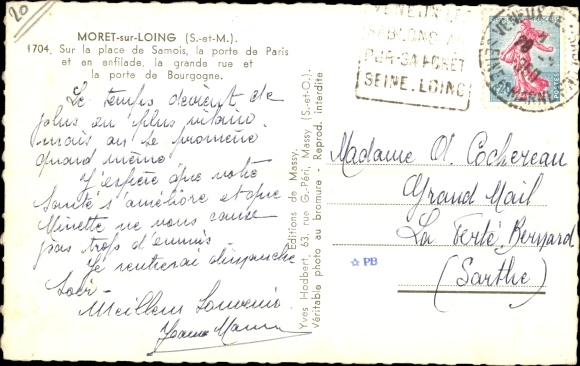 20
MORET-sur-LOING (S.-et-M.).
1704. Sur la place de Samois, la porte de Paris
et en enfilade, la grande rue et
la porte de Bourgogne.
Le temps devient de
plus en plus vilain
mais on se promène
quand même.
J'espère que votre
Santé s'améliore et que
Minette ne vous cause
pas trop d'ennuis.
Je rentrerai dimanche
Soir.
Meilleur Souvenir
Editions de Massy.
Yves Hodbert, 63, rue G.-Péri, Massy (S.-et-O.).
Véritable photo au bromure - Reprod. interdite
SABLONS
SA FORET
SEINE. LOING
Madame A. Cochereau
Grand Mail
La Ferté Bernard
(Sarthe)
☆ PB